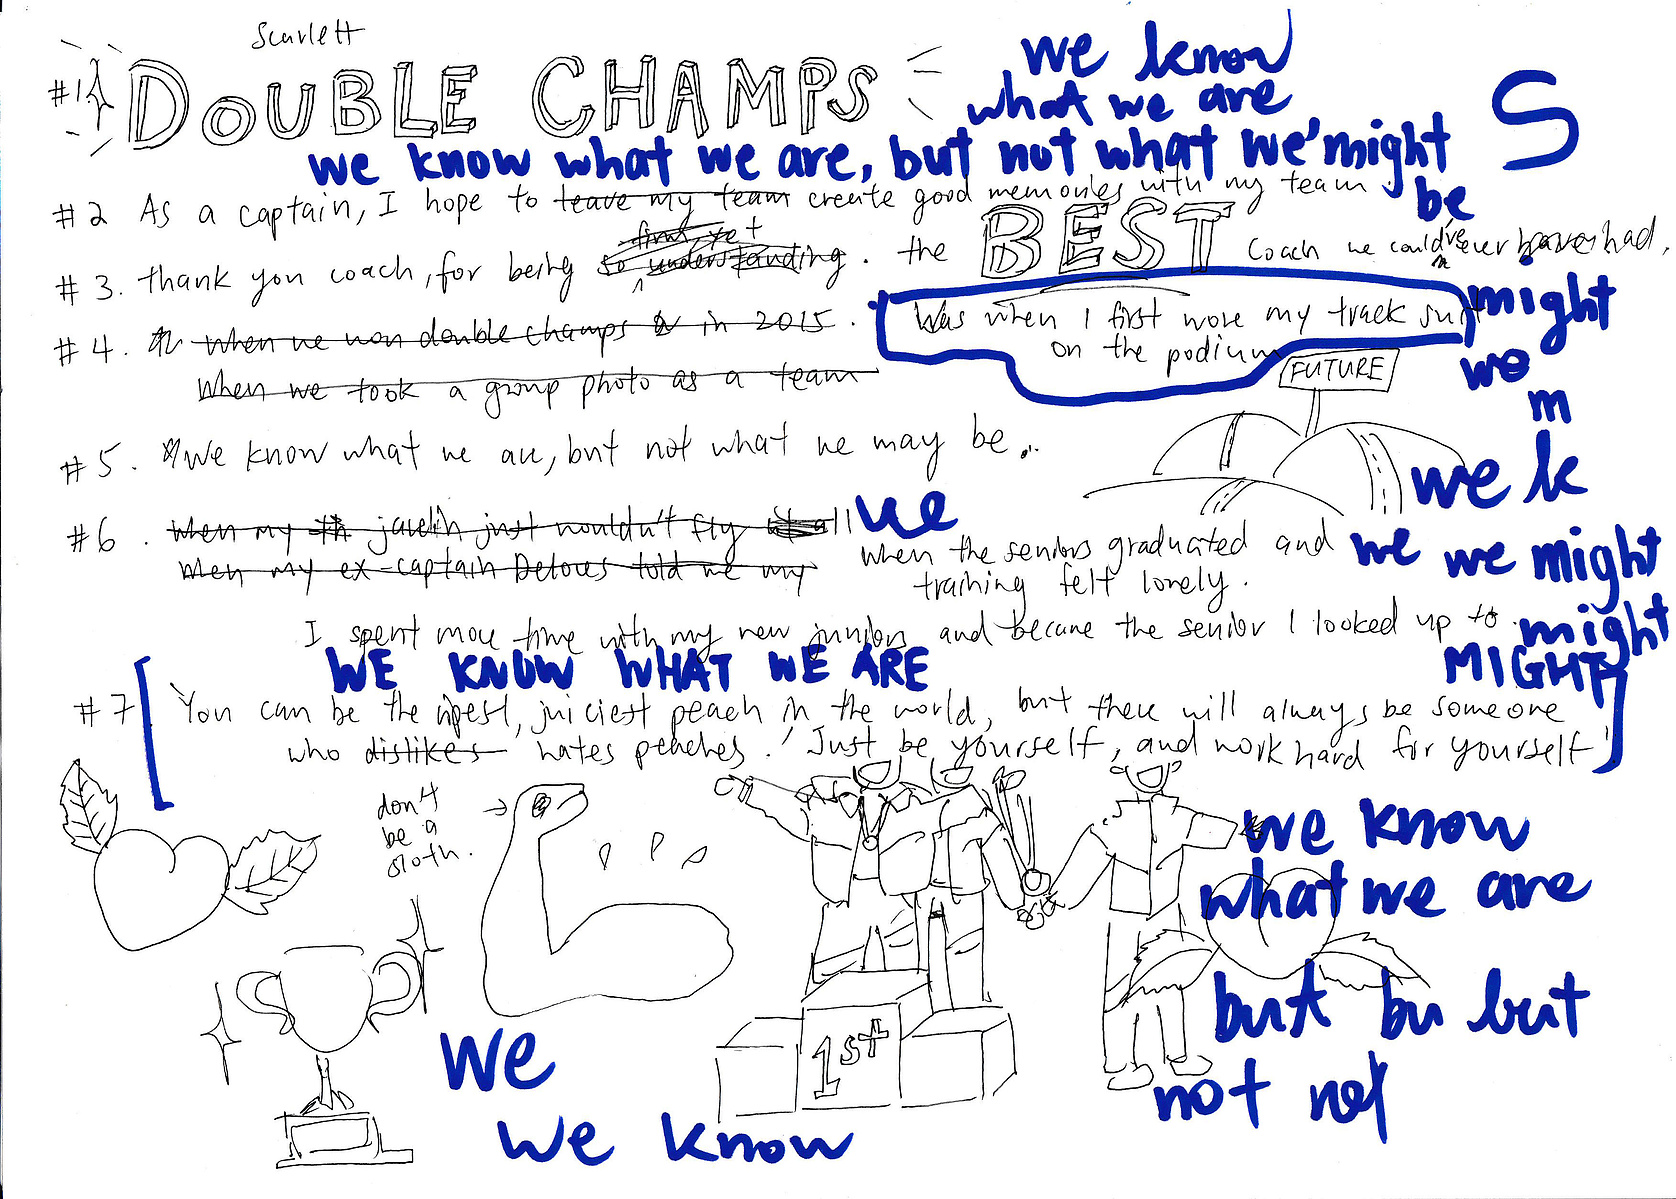 Scarlett
#1 DOUBLE CHAMPS
we know
what we are
S
we know what we are, but not what we might
be
#2 As a captain, I hope to leave my team create good memories with my team.
first yet
#3. thank you coach, for being so understanding. the BEST Coach we could've ever had.
might
#4. when we won double champs in 2015.
Was when I first wore my track suit
on the podium
When we took a group photo as a team
FUTURE
we
m
#5. We know what we are, but not what we may be.
we k
#6. when my javelin just wouldn't fly at all
we
When my ex-captain told me my
when the seniors graduated and
training felt lonely.
we we might
I spent more time with my new juniors and became the senior I looked up to.
might
WE KNOW WHAT WE ARE
MIGHT
#7 You can be the ripest, juiciest peach in the world, but there will always be someone
who dislikes hates peaches. Just be yourself, and work hard for yourself!
don't
be a
sloth.
we know
what we are
but bu but
1st
we
not not
we know